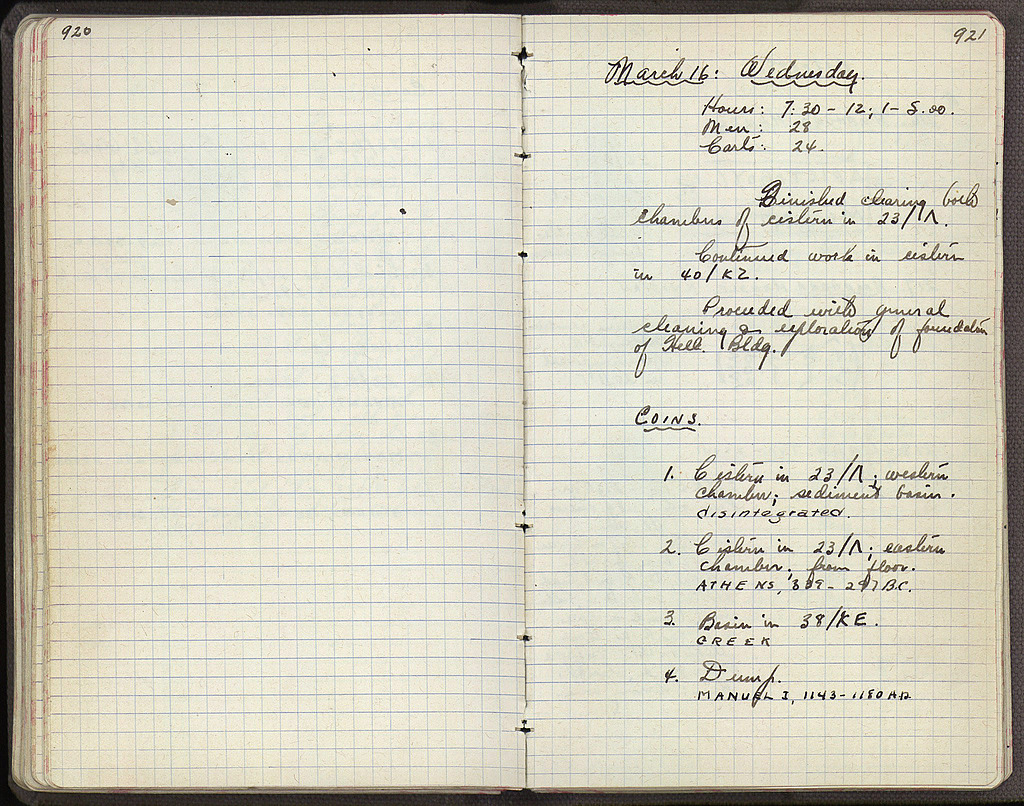 920
921
March 16: Wednesday.
Hours: 7:30 - 12; 1 - 5.00.
Men: 28
Carts: 24.
Finished clearing both
chambers of cistern in 23/Λ.
Continued work in cistern
in 40/ΚΖ.
Proceeded with general
cleaning & exploration of foundation
of Hell. Bldg.
COINS.
1. Cistern in 23/Λ; western
chamber; sediment basin.
disintegrated.
2. Cistern in 23/Λ; eastern
chamber; from floor.
ATHENS, 339 - 297 B.C.
3. Basin in 38/ΚΕ.
GREEK
4. Dump.
MANUEL I, 1143-1180 A.D.